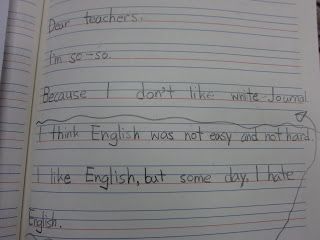 Dear teachers.
I'm so-so.
Because I don't like write Journal
I think English was not easy and not hard.
I like English, but some day. I hate
English.